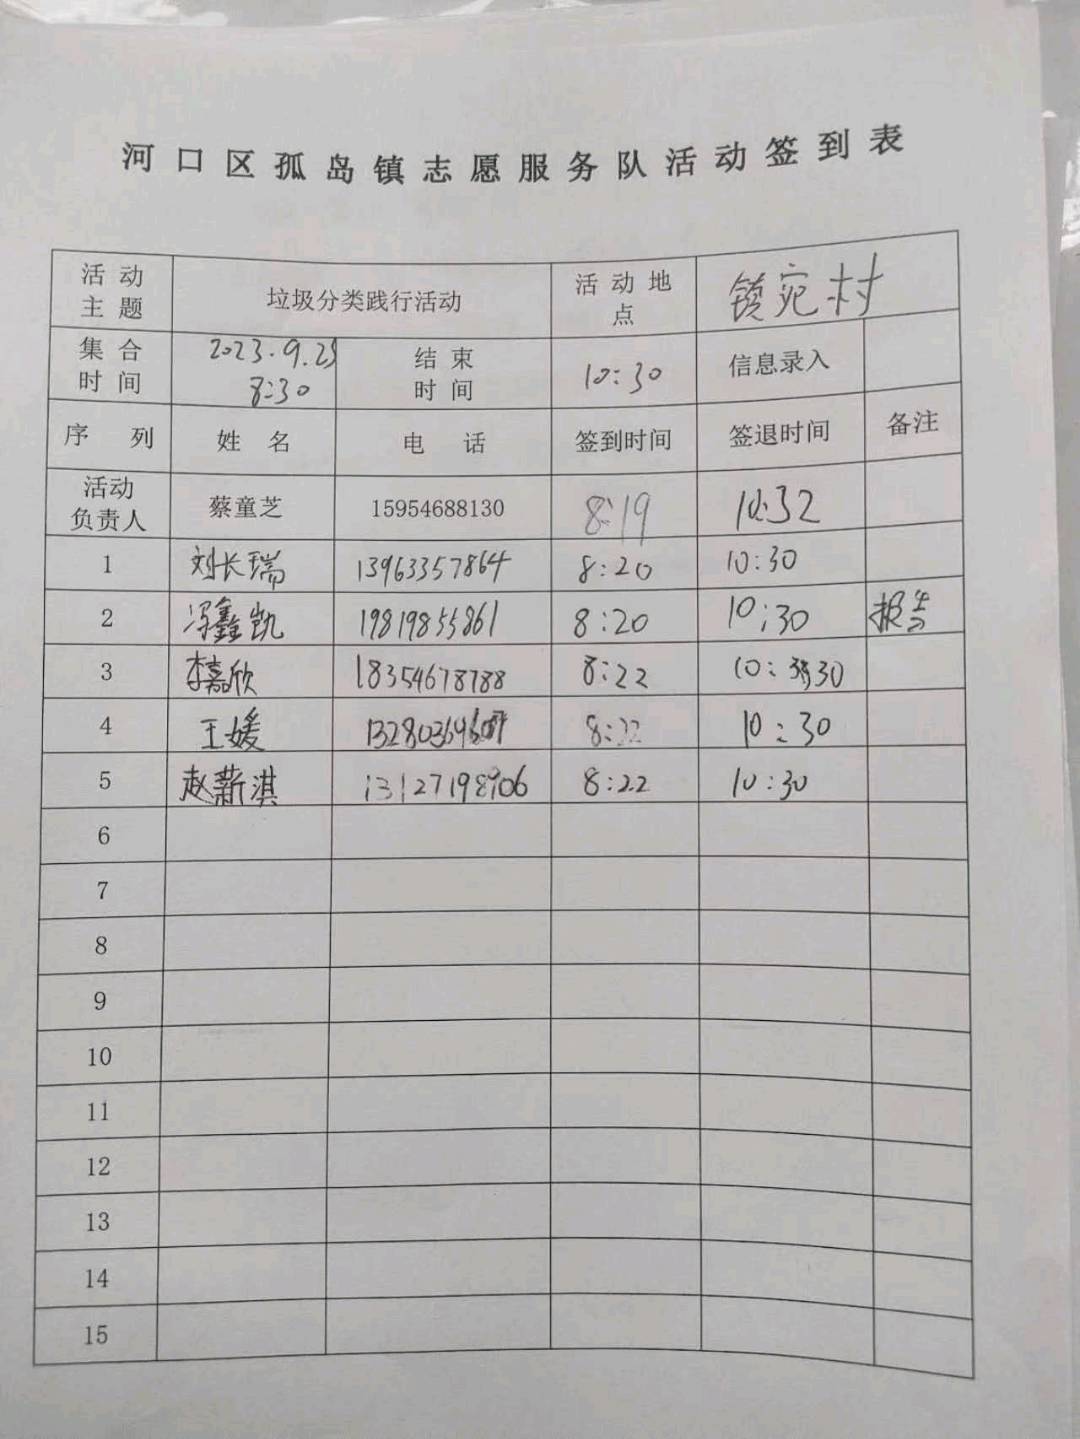 河口区孤岛镇志愿服务队活动签到表
活动主题 垃圾分类践行活动 活动地点 镇宛村
集合时间 2023.9.25 8:30 结束时间 10:30 信息录入
序列 姓名 电话 签到时间 签退时间 备注
活动负责人 蔡童芝 15954688130 8:19 10:32
1 刘长瑞 13963357864 8:20 10:30
2 冯鑫凯 19819855861 8:20 10:30 报告
3 李嘉欣 18354678788 8:22 10:30
4 王媛 8:22 10:30
5 赵薪淇 13127198906 8:22 10:30
6
7
8
9
10
11
12
13
14
15